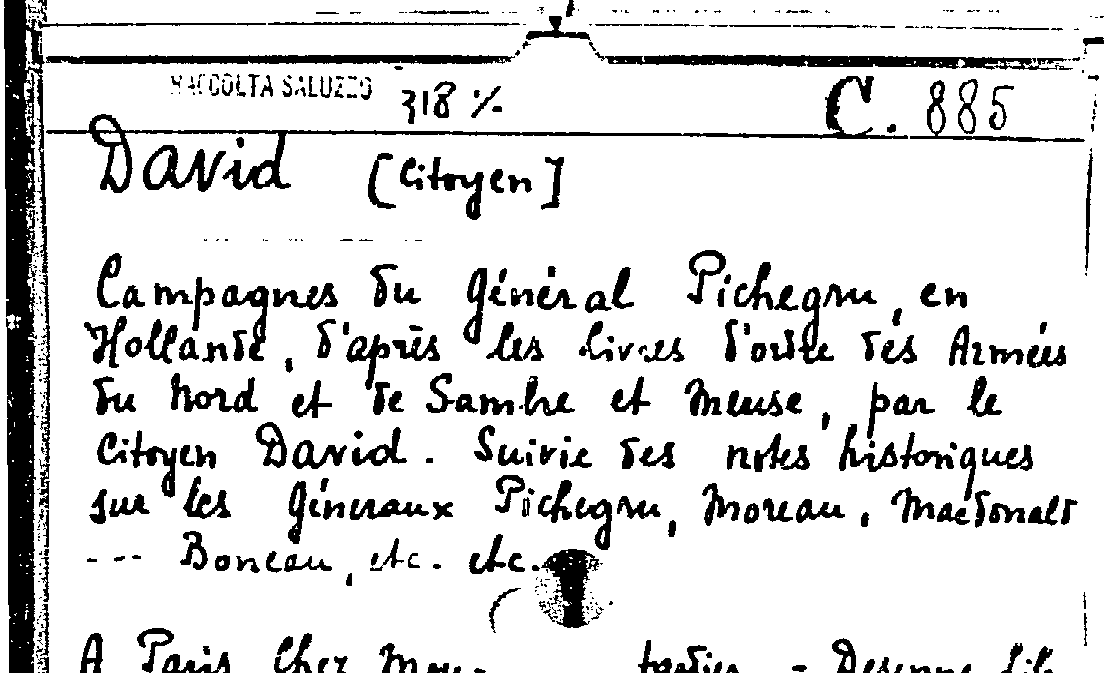 RACCOLTA SALUZZO 318 % C. 885
David [Citoyen]
Campagnes du Général Pichegru, en
Hollande, d'après les livres d'ordre des Armées
du Nord et de Sambre et Meuse, par le
Citoyen David. Suivie des notes historiques
sur les Géneraux Pichegru, Moreau, Macdonald
--- Boneau, etc. etc.
A Paris Chez - Desenne